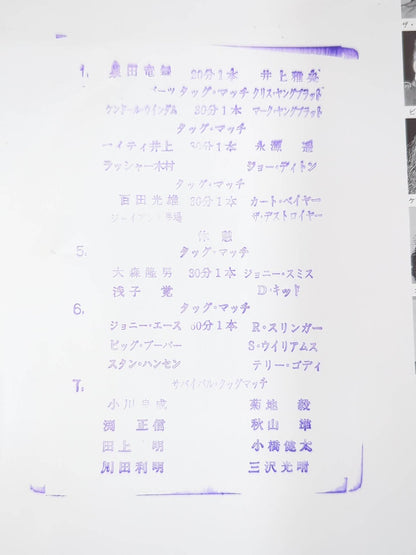 1. 泉田竜舞 20分1本 井上雅央
ーツタッグ・マッチ クリス・ヤングブラッド
ケンドール・ウインダム 30分1本 マーク・ヤングブラッド
タッグ・マッチ
マイティ井上 30分1本 永源遥
ラッシャー木村 ジョー・ディトン
タッグ・マッチ
百田光雄 30分1本 カート・ベイヤー
ジャイアント馬場 ザ・デストロイヤー
休憩
5. タッグ・マッチ
大森隆男 30分1本 ジョニー・スミス
浅子 覚 D・キッド
6. タッグ・マッチ
ジョニー・エース 60分1本 R・スリンガー
ビッグ・ブーバー S・ウイリアムス
スタン・ハンセン テリー・ゴディ
7. サバイバル・タッグマッチ
小川良成 菊地 毅
渕 正信 秋山 準
田上 明 小橋健太
川田利明 三沢光晴